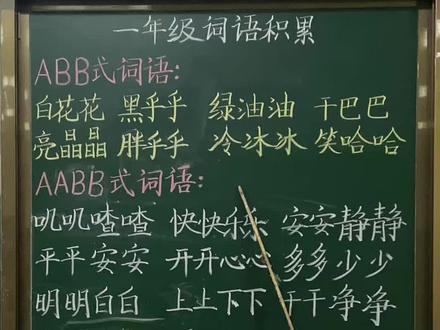 一年级词语积累
ABB式词语:
白花花 黑乎乎 绿油油 干巴巴
亮晶晶 胖乎乎 冷冰冰 笑哈哈
AABB式词语:
叽叽喳喳 快快乐乐 安安静静
平平安安 开开心心 多多少少
明明白白 上上下下 干干净净